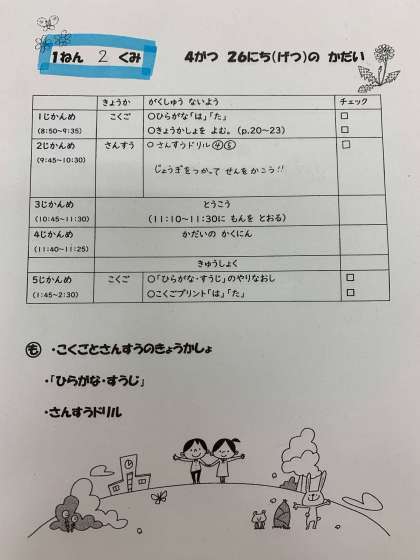 1ねん 2 くみ
4がつ 26にち(げつ)の かだい
きょうか がくしゅう ないよう チェック
1じかんめ (8:50~9:35) こくご ○ひらがな「は」「た」 □
○きょうかしょを よむ。(p.20~23) □
2じかんめ (9:45~10:30) さんすう ○さんすうドリル④⑤ □
じょうぎをつかって せんをかこう!!
3じかんめ (10:45~11:30) とうこう
(11:10~11:30に もんを とおる)
4じかんめ (11:40~11:25) かだいの かくにん
きゅうしょく
5じかんめ (1:45~2:30) こくご ○「ひらがな・すうじ」のやりなおし □
○こくごプリント「は」「た」 □
も ・こくごとさんすうのきょうかしょ
・「ひらがな・すうじ」
・さんすうドリル